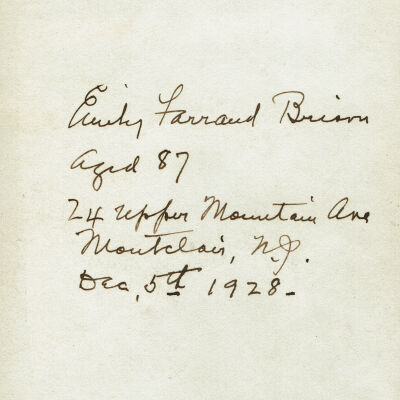 Emily Farrand Brison
Aged 87
24 Upper Mountain Ave
Montclair, N.J.
Dec, 5th 1928-